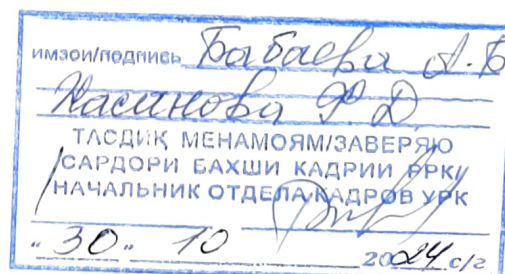 имзои/подпись Бабаева А.Б
Хасанова Ф.Д
ТАСДИҚ МЕНАМОЯМ/ЗАВЕРЯЮ
САРДОРИ БАХШИ КАДРИИ РРК/
НАЧАЛЬНИК ОТДЕЛА КАДРОВ УРК
"30" 10 2024 с/г